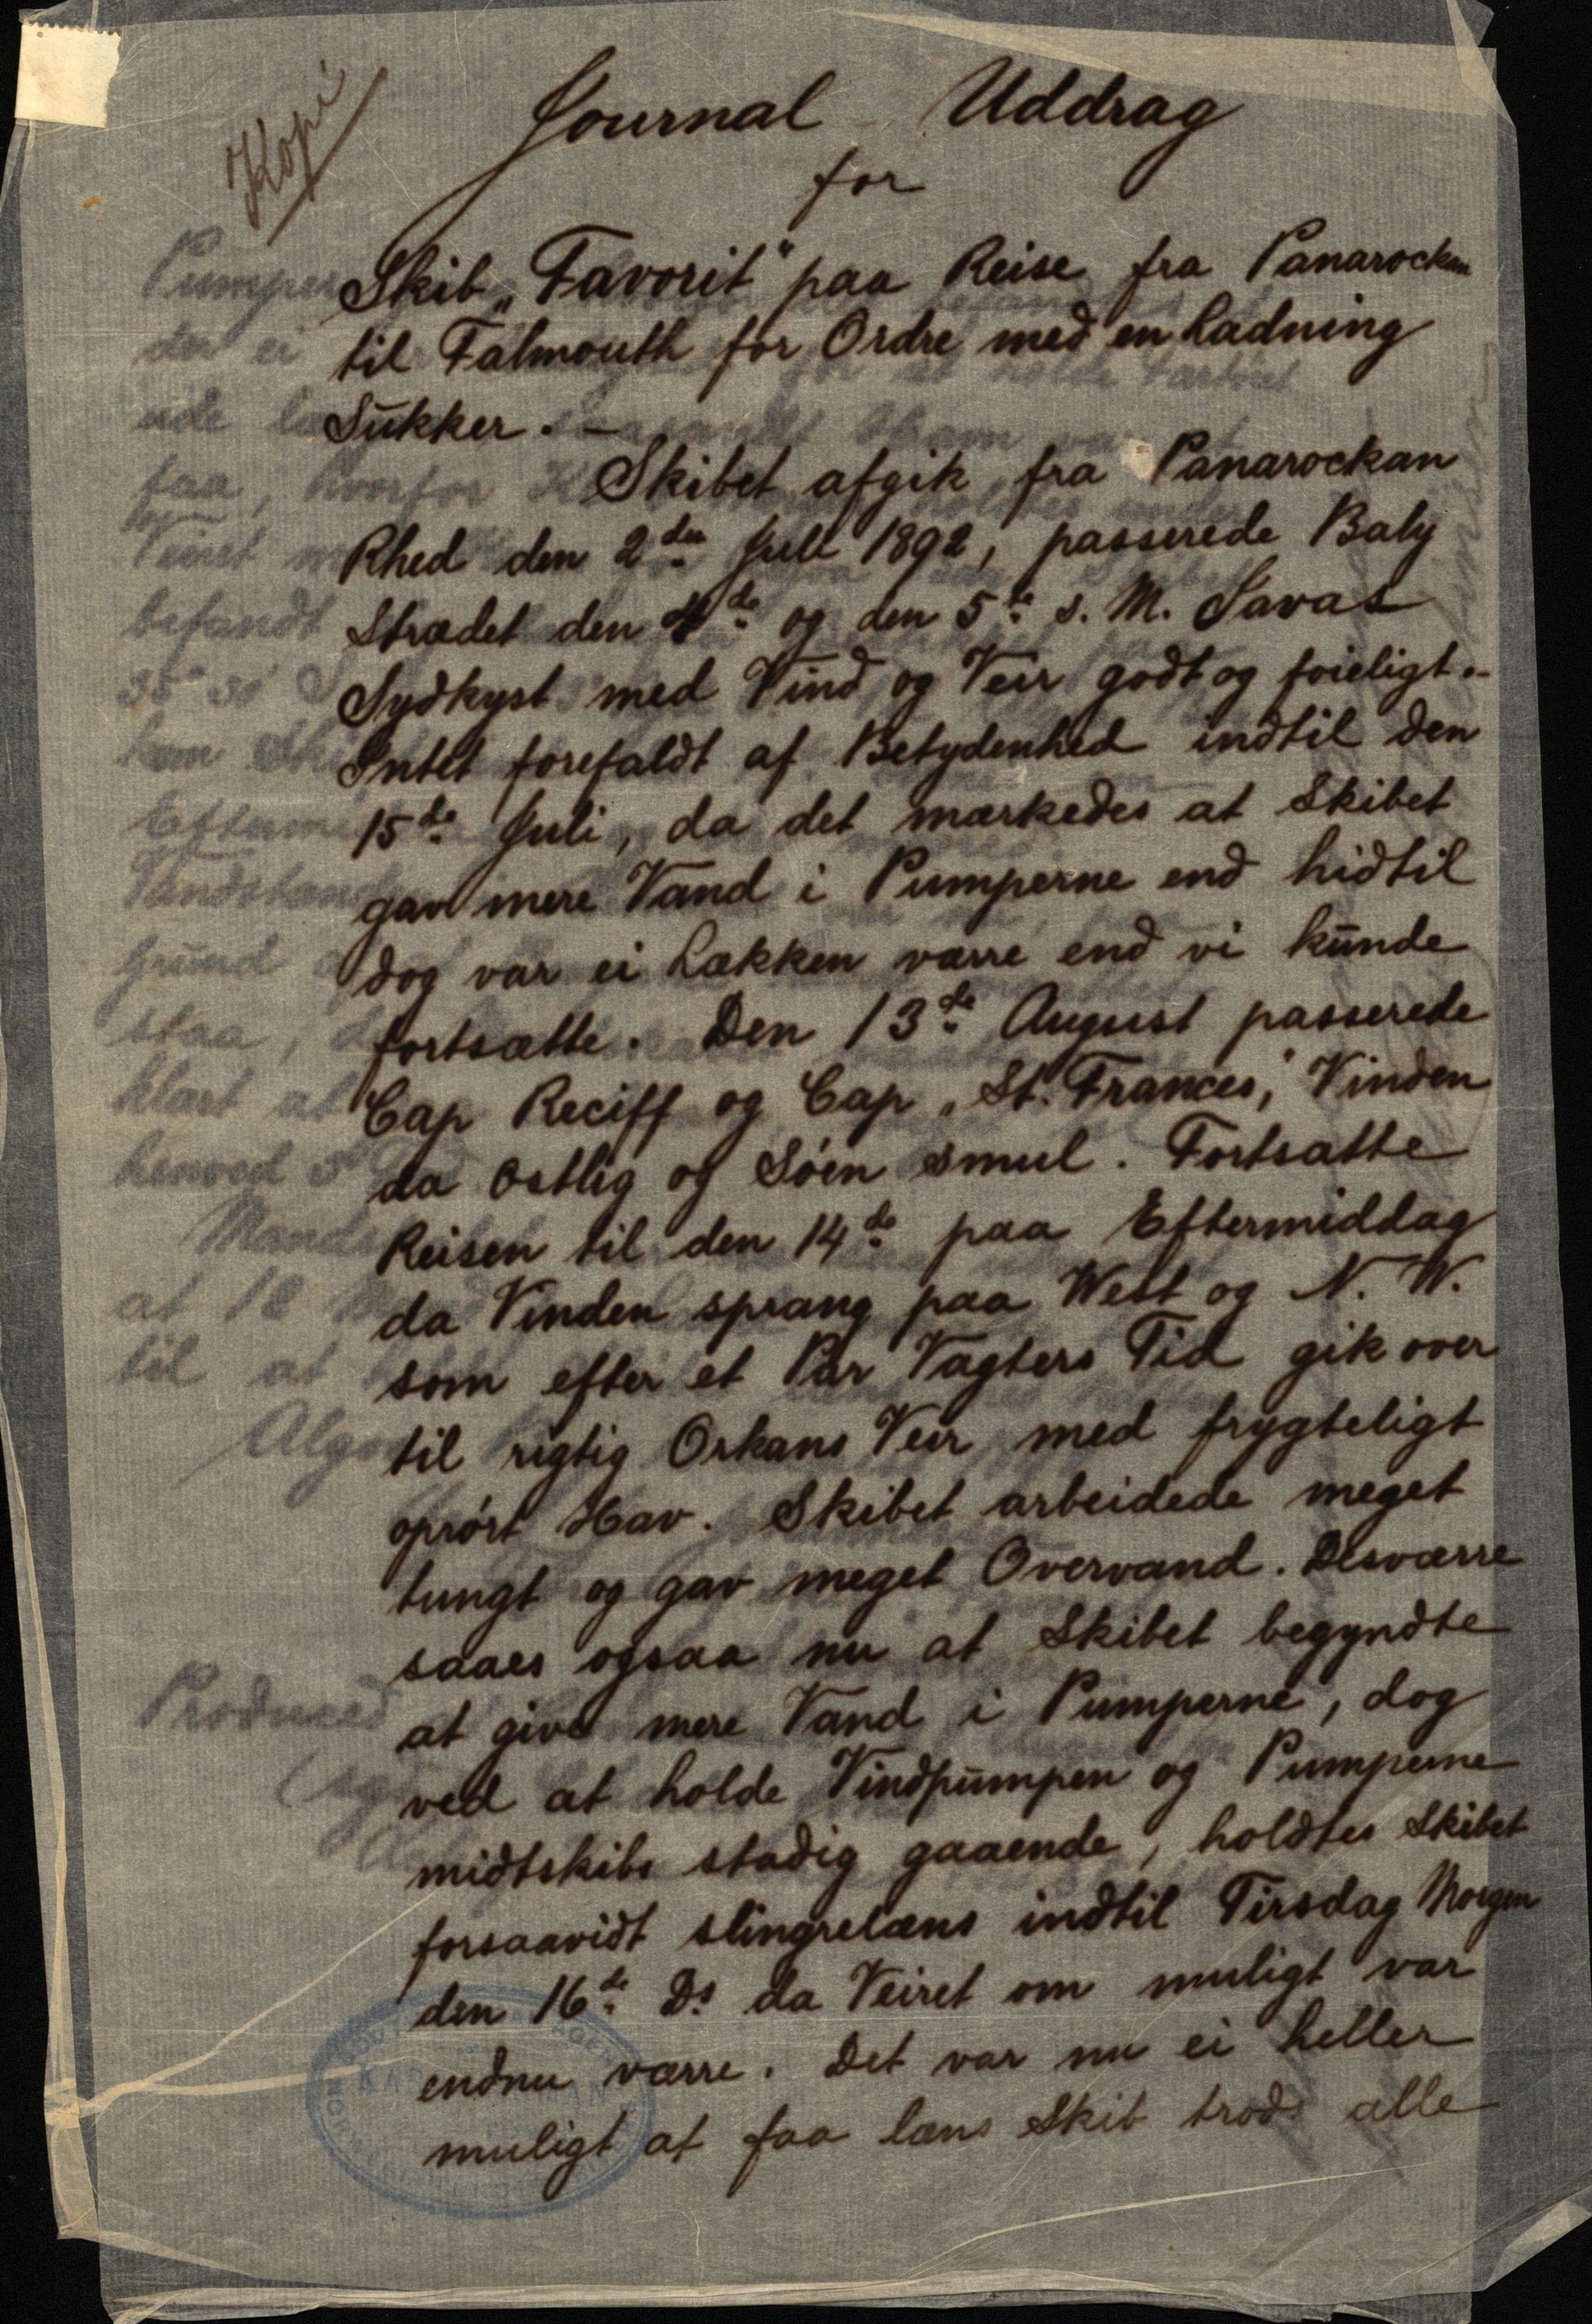 Kopi
Journal - Uddrag
for
Skib „Favorit" paa Reise fra Panarockan
til Falmouth for Ordre med en Ladning
Sukker. -
Skibet afgik fra Panarockan
Rhed den 2den Juli 1892, passerede Baly
Strædet den 4de og den 5te s. M. Javas
Sydkyst med Vind og Veir godt og føieligt.-
Intet forefaldt af Betydenhed indtil den
15de Juli, da det mærkedes at Skibet
gav mere Vand i Pumperne end hidtil
dog var ei Lækken værre end vi kunde
fortsætte. Den 13de August passerede
Cap Reciff og Cap „St. Frances," Vinden
da Østlig og Søen smul. Fortsatte
Reisen til den 14de paa Eftermiddag
da Vinden sprang paa West og N. W.
som efter et Par Vagters Tid gik over
til rigtig Orkans Veir med frygteligt
oprørt Hav. Skibet arbeidede meget
tungt og gav meget Overvand. Desværre
saaes ogsaa nu at Skibet begyndte
at give mere Vand i Pumperne, dog
ved at holde Vindpumpen og Pumperne
midtskibs stadig gaaende, holdtes Skibet
forsaavidt slingrelæns indtil Tirsdag Morgen
den 16de Ds da Veiret om muligt var
endnu værre. Det var nu ei heller
muligt at faa læns Skib trods alle